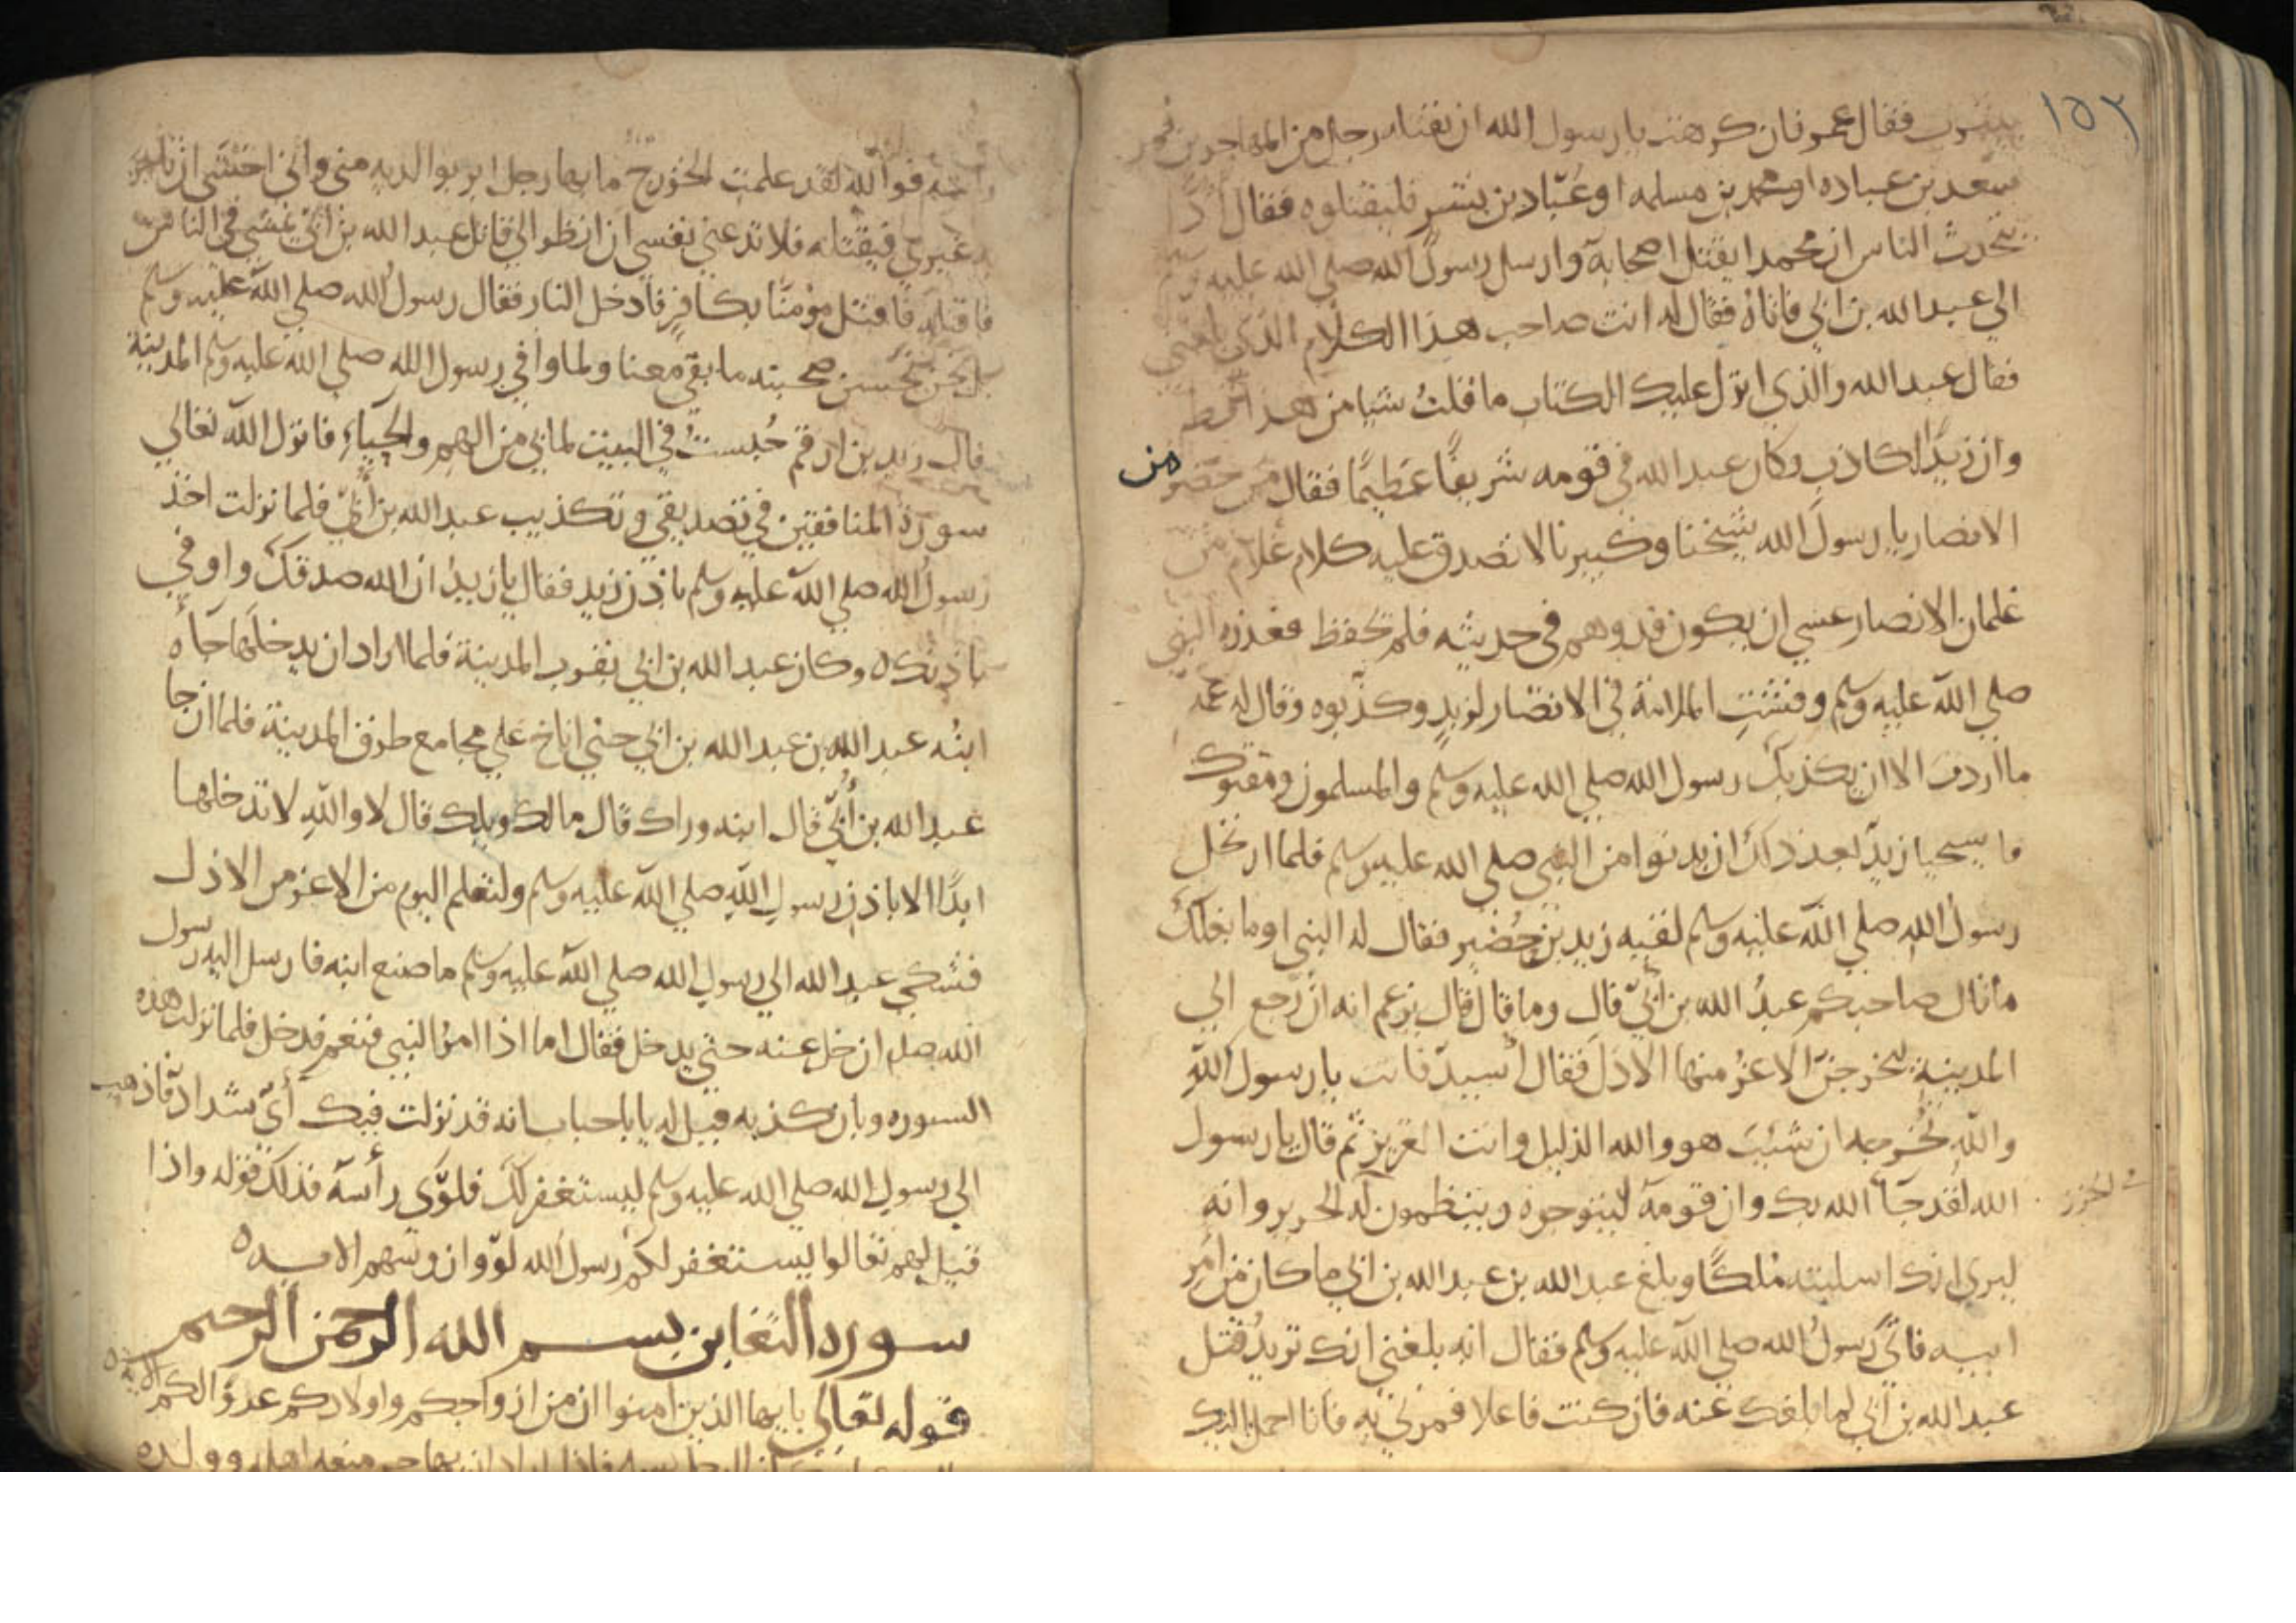 ١٥٢
بيثرب فقال عمر فان كرهت يا رسول الله ان يقتله رجل من المهاجرين فمر
سعد بن عباده او محمد بن مسلمه او عباد بن بشر فليقتلوه فقال اذًا
يتحدث الناس ان محمدا يقتل اصحابه وارسل رسول الله صلي الله عليه وسلم
الي عبد الله بن ابي فاتاه فقال له انت صاحب هذا الكلام الذي بلغني
فقال عبد الله والذي انزل عليك الكتاب ما قلت شيا من هذا قط
وان زيدًا لكاذب وكان عبد الله في قومه شريفًا عظيمًا فقال من حضر من
الانصار يا رسول الله شيخنا وكبيرنا لا تصدق عليه كلام غلام من
غلمان الانصار عسي ان يكون قد وهم في حديثه فلم يحفظ فعذره النبي
صلي الله عليه وسلم وفشت الملامة في الانصار لزيد وكذبوه وقال له عمه
ما اردت الا ان يكذبك رسول الله صلي الله عليه وسلم والمسلمون ومقتوك
فاسيحيا زيد بعد ذلك ان يدنوا من النبي صلي الله عليه وسلم فلما ارتحل
رسول الله صلي الله عليه وسلم لقيه زيد بن حضير فقال له النبي اوما بغلك
ما قال صاحبكم عبد الله بن ابي قال وما قال قال يزعم انه ان رجع الي
المدينة ليخرجن الاعز منها الاذل فقال اسيد فانت يا رسول الله
والله تخرجه ان شئت هو والله الذليل وانت العزيز ثم قال يا رسول
الله لقد جآ الله بك وان قومه ليتوجوه وينظمون له الخرير وانه
الخرز
ليري انك اسلبته ملكًا وبلغ عبد الله بن عبد الله بن ابي ما كان من امر
ابيه فاتي رسول الله صلي الله عليه وسلم فقال انه بلغني انك تريد قتل
عبد الله بن ابي لما بلغك عنه فان كنت فاعلا فمرني به فانا احمل اليك
راسه فوالله لقد علمت الخزرج ما بها رجل ابر بوالديه مني واني اخشي ان تامر
به غيري فيقتله فلا تدعني نفسي ان انظر الي قاتل عبد الله بن ابي يمشي في الناس
فاقتله فاقتل مؤمنًا بكافر فادخل النار فقال رسول الله صلي الله عليه وسلم
بل نحن نحسن صحبته ما بقي معنا ولما وافي رسول الله صلي الله عليه وسلم المدينة
قال زيد بن ارقم جلست في البيت لما بي من الهم والحياء فانزل الله تعالي
سورة المنافقين في تصديقي وتكذيب عبد الله بن ابي فلما نزلت اخذ
رسول الله صلي الله عليه وسلم باذن زيد فقال يا زيد ان الله صدقك واوفي
باذنك ٥ وكان عبد الله بن ابي بقرب المدينة فلما اراد ان يدخلها جاه
ابنه عبد الله بن عبد الله بن ابي حتي اناخ علي مجامع طرق المدينة فلما ان جا
عبد الله بن ابي قال ابنه وراك قال مالك ويلك قال لا والله لا تدخلها
ابدًا الا باذن رسول الله صلي الله عليه وسلم ولتعلم اليوم من الاعز من الاذل
فشكي عبد الله الي رسول الله صلي الله عليه وسلم ما صنع ابنه فارسل اليه رسول
الله صلم ان خل عنه حتي يدخل فقال اما اذا امر النبي فنعم فدخل فلما نزلت هذه
السوره وبان كذبه قيل له يا ابا حباب انه قد نزلت فيك أيّ شداد فاذهب
الي رسول الله صلي الله عليه وسلم ليستغفر لك فلوي رأسه فذلك قوله واذا
قيل لهم تعالوا يستغفر لكم رسول الله لووا رؤسهم الايه ٥
سورة التغابن بسم الله الرحمن الرحيم
قوله تعالي يا يها الذين امنوا ان من ازواجكم واولادكم عدوًا لكم الايه ٥